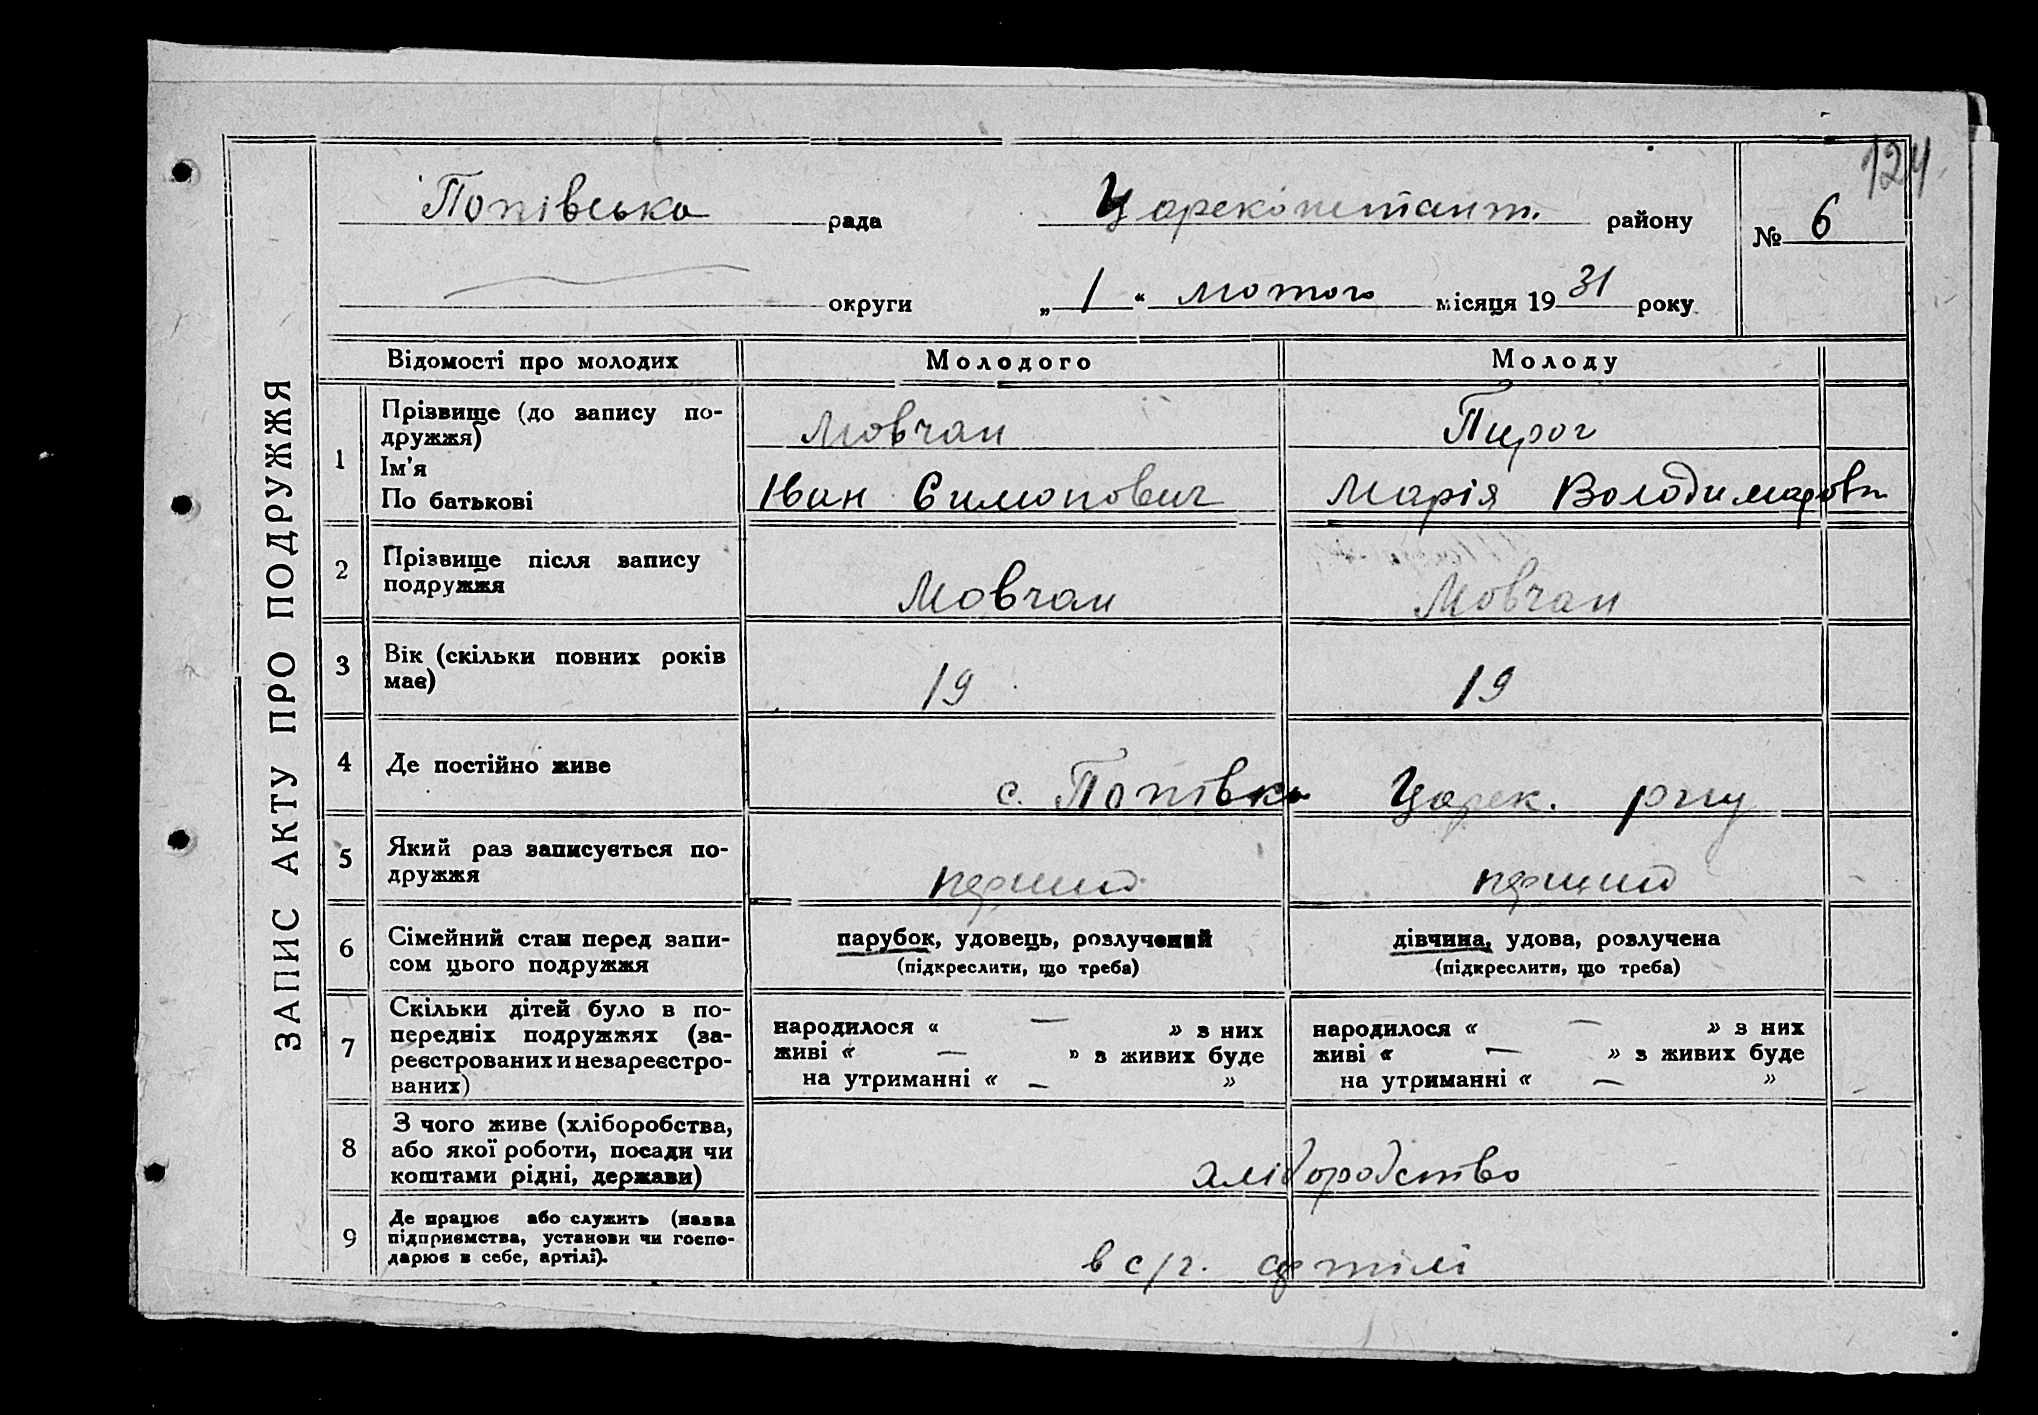 124
Попівська рада Царекопстант. району № 6
округи „ 1 “ лютого місяця 19 31 року
ЗАПИС АКТУ ПРО ПОДРУЖЖЯ
Відомості про молодих Молодого Молоду
1 Прізвище (до запису по-
дружжя) Мовчан Пирог
Ім’я
По батькові Іван Симонович Марія Володимаровн
2 Прізвище після запису
подружжя Мовчан Мовчан
3 Вік (скільки повних років
має) 19 19
4 Де постійно живе с. Попівка Царек. р-ну
5 Який раз записується по-
дружжя перший перший
6 Сімейний стан перед запи-
сом цього подружжя
парубок, удовець, розлучений
(підкреслити, що треба)
дівчина, удова, розлучена
(підкреслити, що треба)
7 Скільки дітей було в по-
передніх подружжях (за-
реєстрованих и незареєстро-
ваних)
народилося « — » з них
живі « — » з живих буде
на утриманні « — »
народилося « — » з них
живі « — » з живих буде
на утриманні « — »
8 З чого живе (хліборобства,
або якої роботи, посади чи
коштами рідні, держави) хліборобство
9 Де працює або служить (назва
підприємства, установи чи госпо-
дарює в себе, артілі). в с/г. артілі